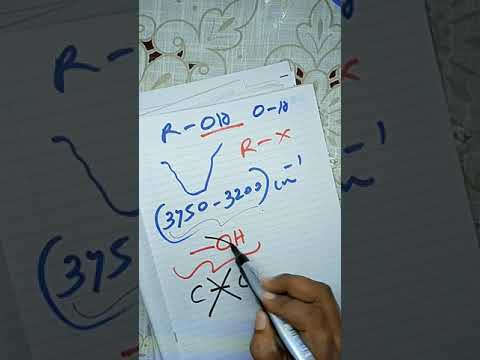 R-OH O-H
R-X
(3750-3200) cm⁻¹
-OH
C-C